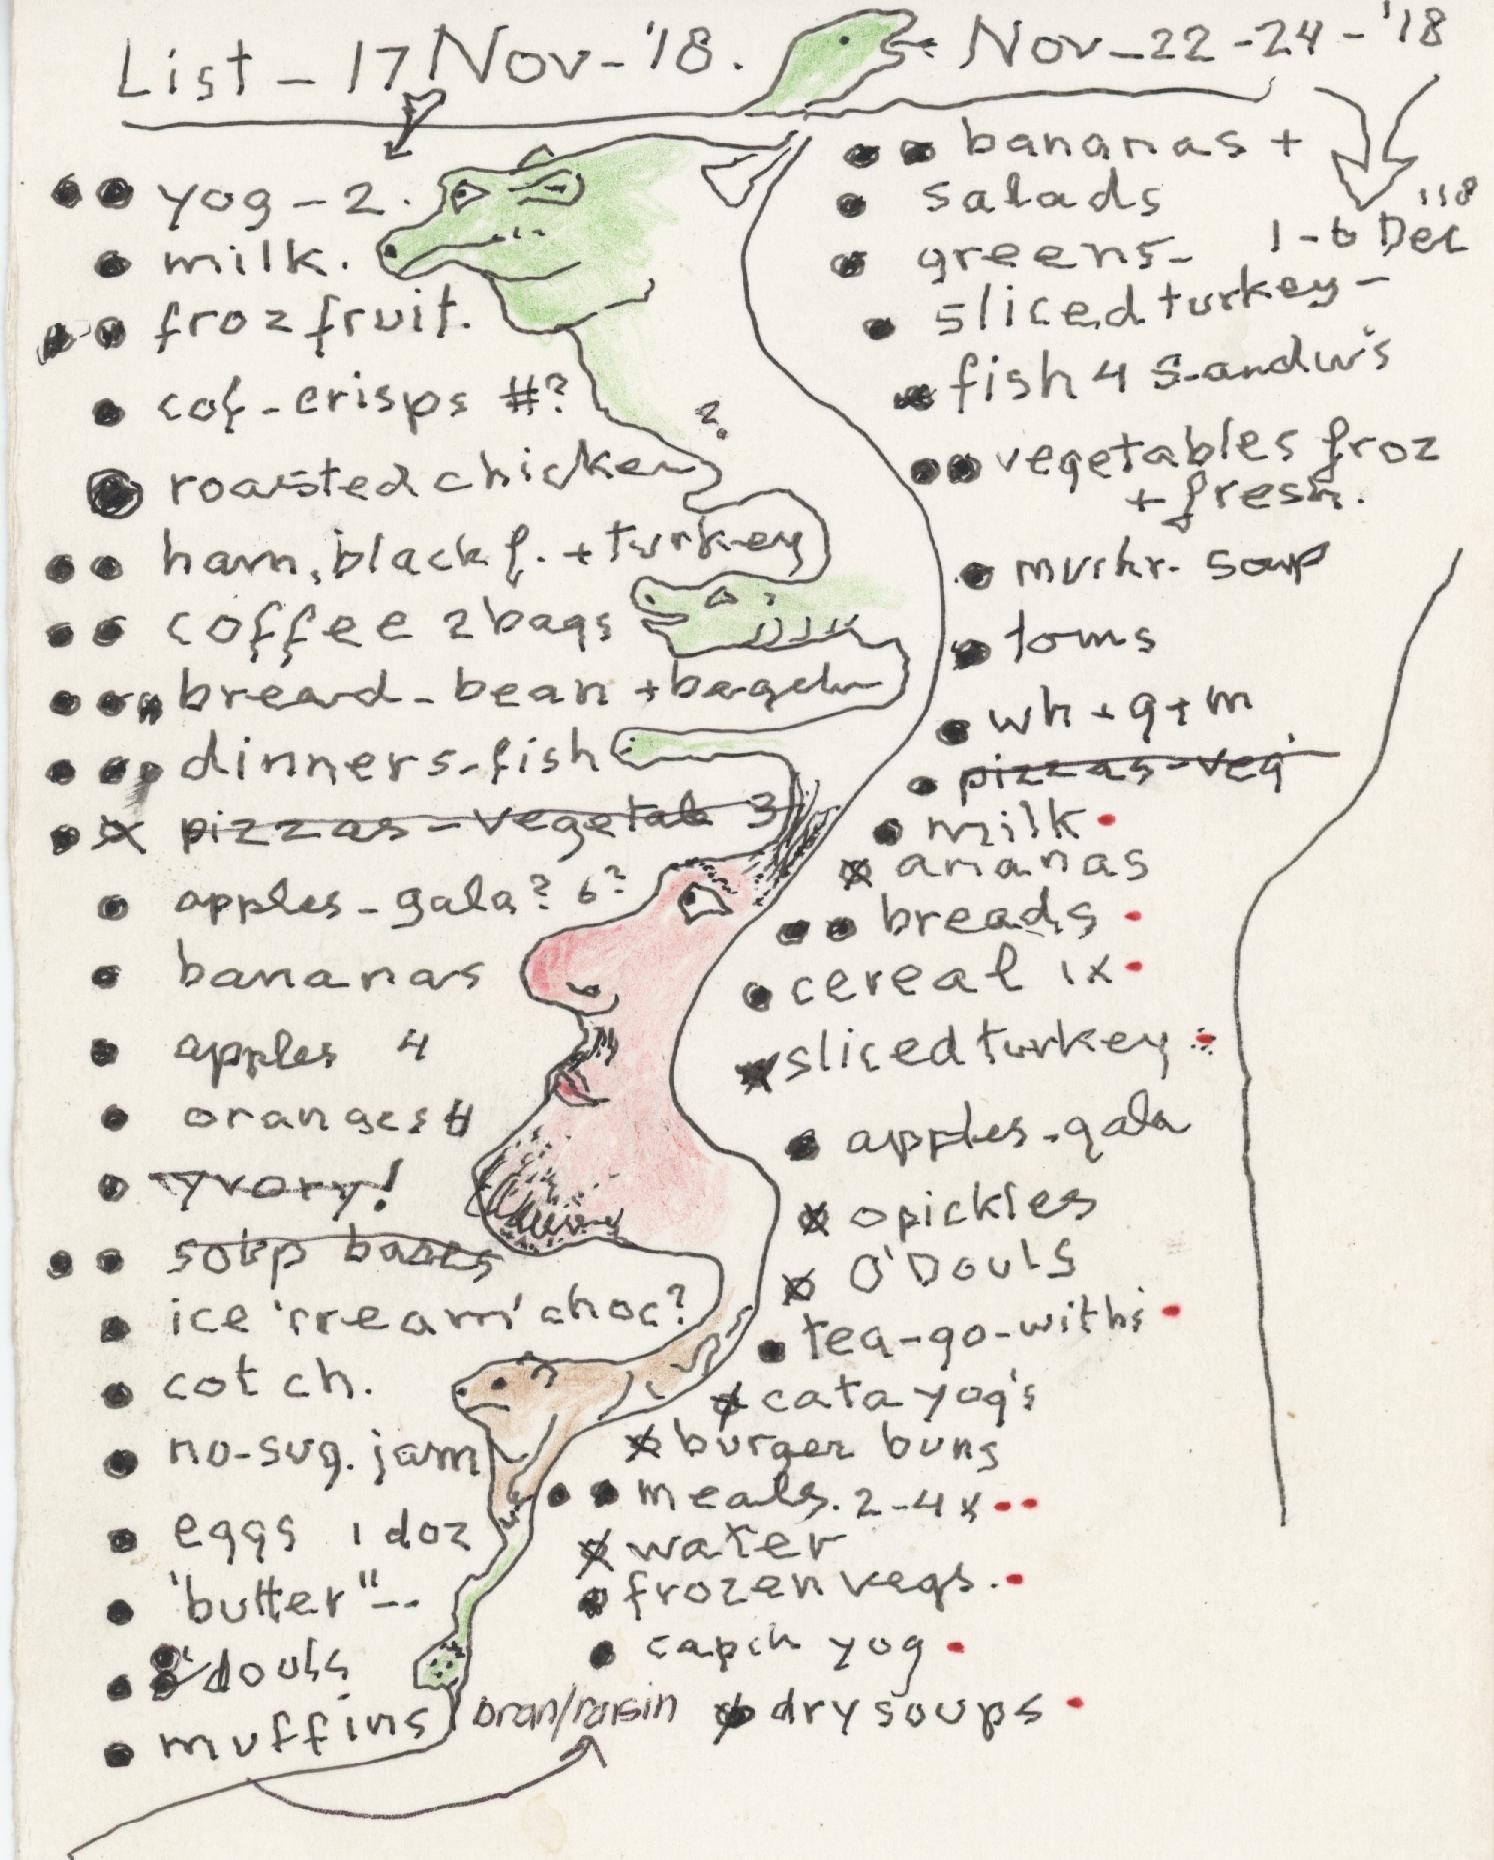 List - 17 Nov - '18.
Nov - 22 - 24 - '18
yog - 2.
milk.
froz fruit.
cof - crisps #?
?
roasted chicken
ham, black f. + turkey
coffee 2 bags
bread - bean + bagels
dinners - fish
pizzas - vegetab 3
apples - gala? 6?
bananas
apples 4
oranges 4
yvory!
soap bars
ice 'cream' choc?
cot ch.
no-sug. jam
eggs 1 doz
"butter" --
O'douls
muffins
bran/raisin
bananas +
salads
1-6 Dec '18
greens -
sliced turkey -
fish 4 sandw's
vegetables froz
+ fresh.
mushr. soup
toms
wh + g + m
pizzas - veg
milk
ananas
breads
cereal 1x
sliced turkey
apples - gala
pickles
O'Douls
tea - go - withs
cata yog's
burger buns
meals. 2-4x
water
frozen vegs.
yog
dry soups